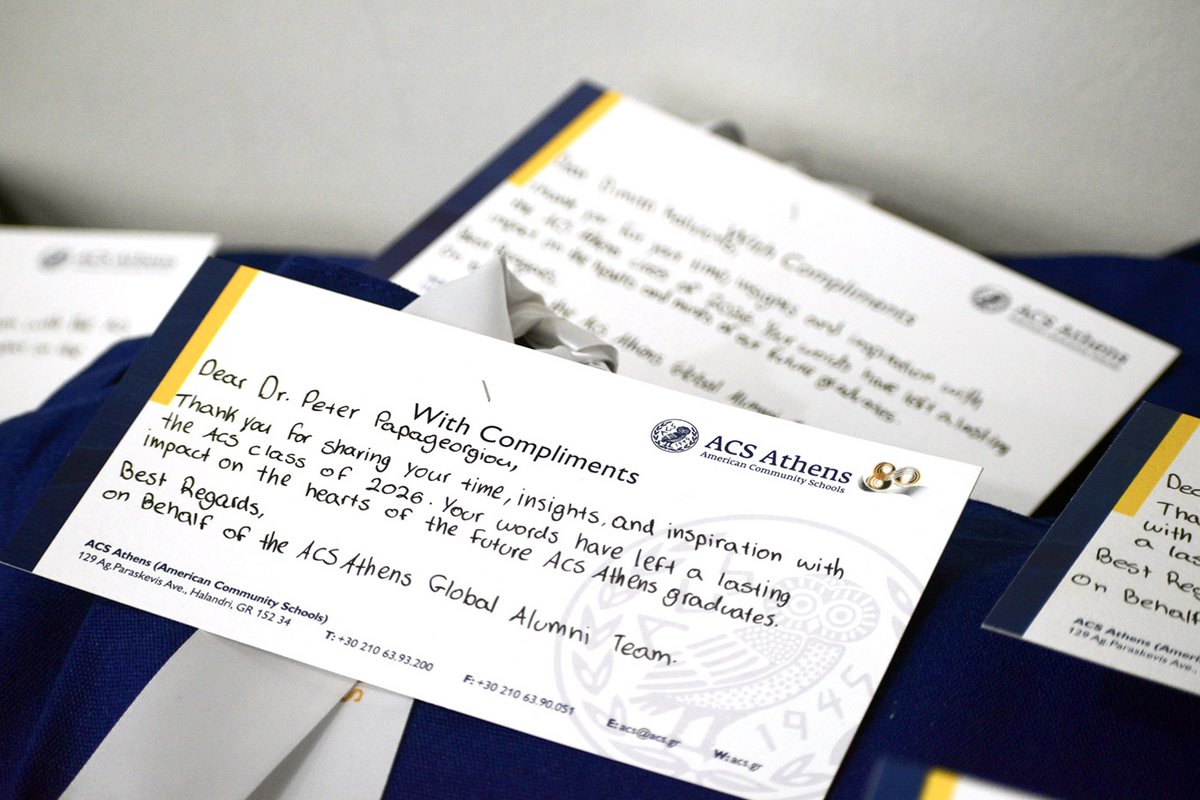 ACS Athens
Dear
With Compliments
Thank you for your time, insights and inspiration with
the ACS Athens class of 2026. Your words have left a lasting
impact on the hearts and minds of our future graduates.
Best Regards,
the ACS Athens Global Alumni
ACS Athens
Dear Dr. Peter Papageorgiou,
With Compliments
Thank you for sharing your time, insights, and inspiration with
the ACS class of 2026. Your words have left a lasting
impact on the hearts of the future ACS Athens graduates.
Best Regards,
on Behalf of the ACS Athens Global Alumni Team.
ACS Athens
American Community Schools
80
ACS Athens (American Community Schools)
129 Ag.Paraskevis Ave., Halandri, GR 152 34
T: +30 210 63.93.200
F: +30 210 63.90.051
E: acs@acs.gr
W: acs.gr
1945
Dea
Tha
with
a las
Best Reg
on Behalf
ACS Athens (Ameri
129 Ag.Paraskevis Ave.,